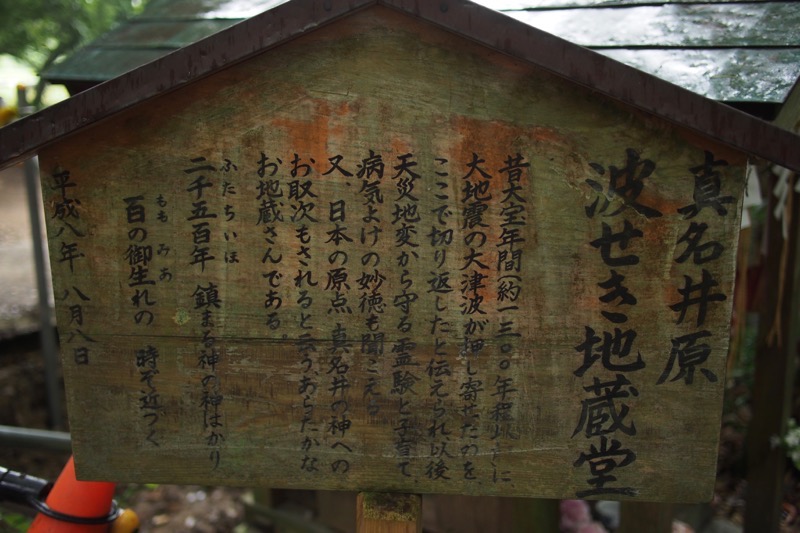 真名井原
波せき地蔵堂
昔大宝年間(約一三〇〇年程以前に
大地震の大津波が押し寄せたのを、
ここで切り返したと伝えられ以後
天災地変から守る霊験と子育て、
病気よけの妙徳も聞こえる
又、日本の原点 真名井の神への
お取次もされると云うあらたかな
お地蔵さんである。
ふたちいほ
二千五百年 鎮まる神の神はかり
もも みあ
百の御生れの 時ぞ近づく
平成八年 八月八日